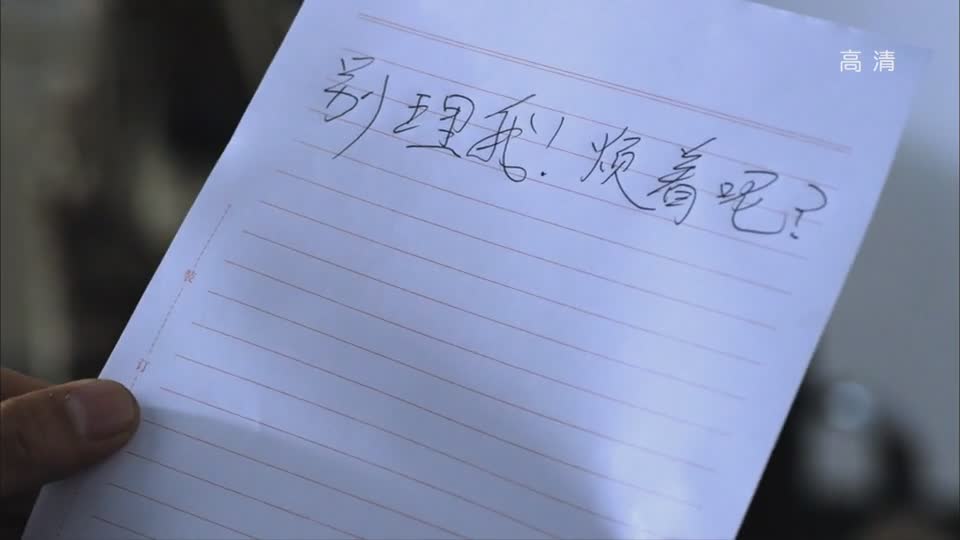 高清
别理我!烦着呢?
装
订